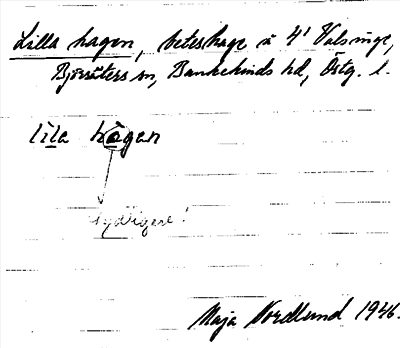 Lilla hagen, beteshage å 4¹ Valsinge,
Björsäters sn, Bankekinds hd, Östg. l.
lila hagan
tydligare!
Maja Nordlund 1946.